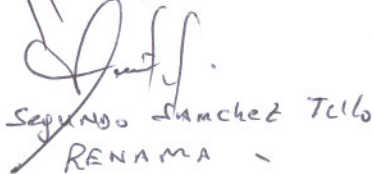 Segundo Sanchez Tello
RENAMA